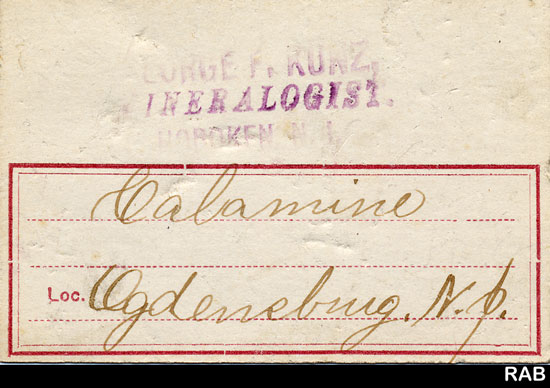 EORGE F. KUNZ,
INERALOGIST.
HOBOKEN N.J.
Calamine
Loc. Ogdensburg, N.J.
RAB